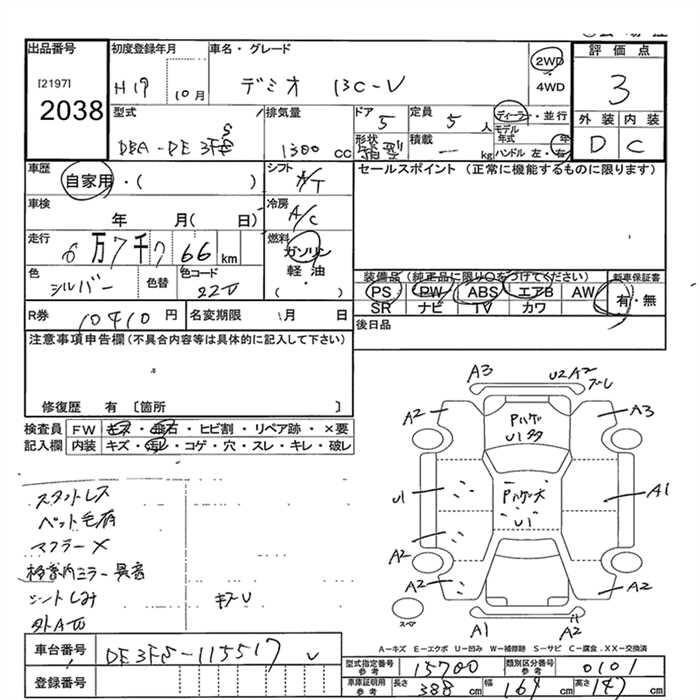 出品番号
[2197]
2038
初度登録年月
H19 10月
車名・グレード
デミオ 13C-V
2WD
4WD
評価点
3
外装 内装
D C
型式
DBA-DE3FS
排気量
1300 cc
ドア
5
定員
5 人
ディーラー・並行
モデル年式 年
ハンドル 左・右
形状
積載
ー kg
車歴
自家用・( )
シフト
AT
セールスポイント (正常に機能するものに限ります)
車検
年 月( 日)
冷房
A/C
走行
6万7千 66 km
燃料
ガソリン
軽油
( ・ )
色
シルバー
色替
色コード
22V
装備品 (純正品に限り○をつけてください)
PS PW ABS エアB AW
SR ナビ TV カワ
新車保証書
有・無
R券
10410円
名変期限 月 日
後日品
注意事項申告欄 (不具合内容等は具体的に記入して下さい)
修復歴 有 〔箇所 〕
検査員 FW キズ・飛石・ヒビ割・リペア跡・×要
記入欄 内装 キズ・汚レ・コゲ・穴・スレ・キレ・破レ
スタットレス
ペット毛有
マフラー×
ミラー
シートしみ
キズU
A3
U2 A2
ズレ
A2
A3
Pハゲ
U1多
U1
Pハゲ大
U1
A1
A2
A2
A2
A1
A2
スペア
A－キズ E－エクボ U－凹み W－補修跡 S－サビ C－腐食 XX－交換済
車台番号
DE3FS-115517
登録番号
型式指定番号 参考
15700
類別区分番号 参考
0101
車庫証明用 参考
長さ 388 cm
幅 169 cm
高さ 147 cm